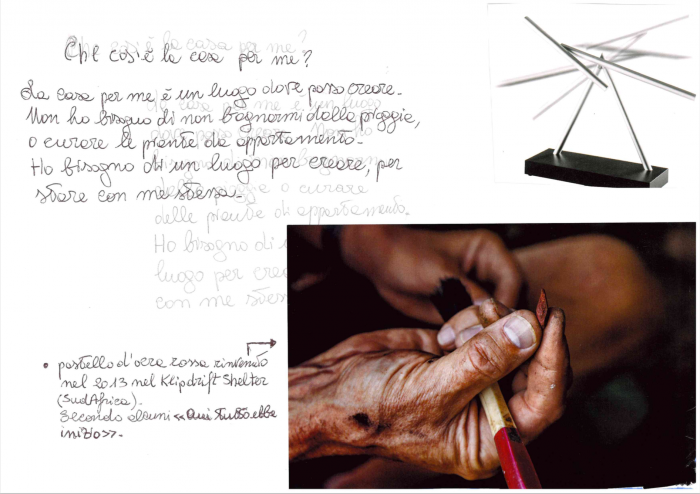 Che cos'è la casa per me?
La casa per me è un luogo dove posso creare.
Non ho bisogno di non bagnarmi dalla pioggia,
o curare le piante da appartamento.
Ho bisogno di un luogo per creare, per
stare con me stessa.
o curare
delle piante di appartamento.
Ho bisogno di
luogo per
con me
• pastello d'ocra rossa rinvenuto
nel 2013 nel Klipdrift Shelter
(SudAfrica).
Secondo alcuni «Qui tutto ebbe
inizio».